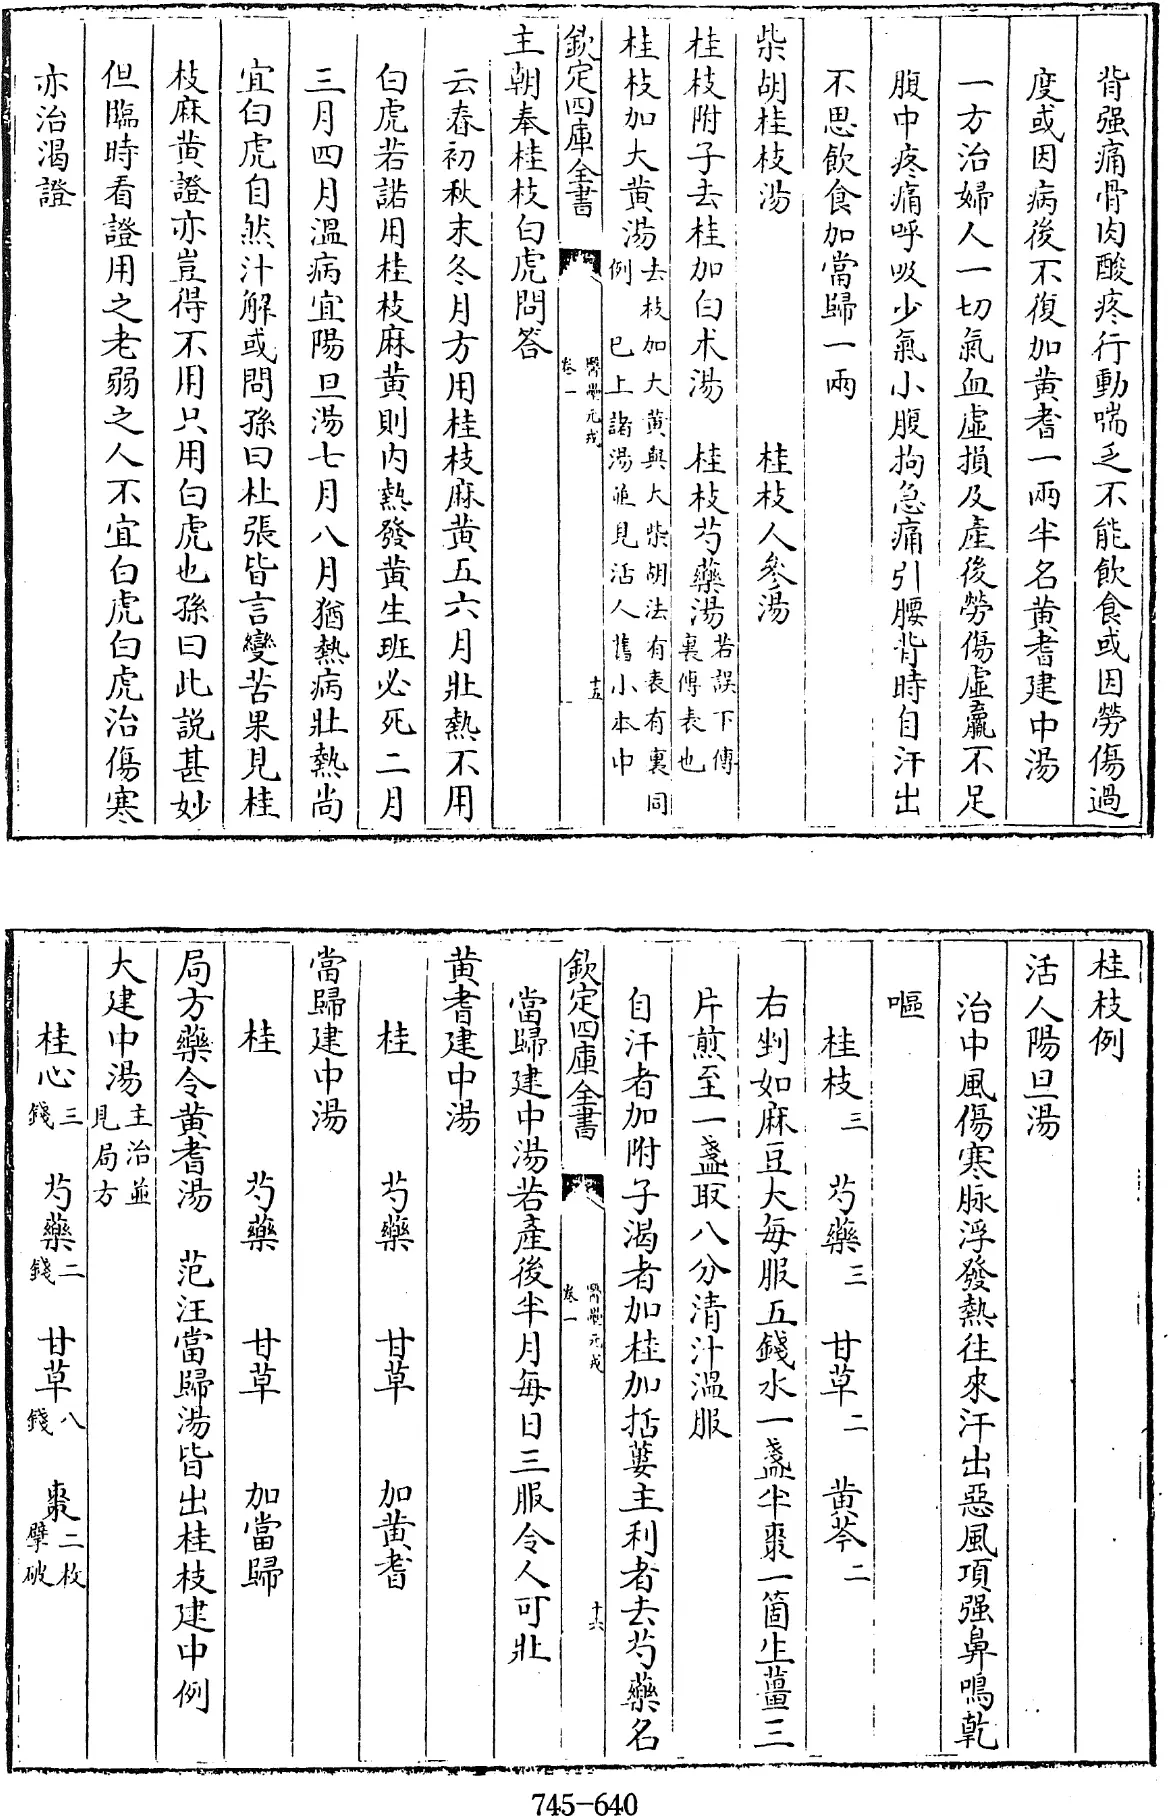 背强痛骨肉酸疼行動喘乏不能飲食或因勞傷過
度或因病後不復加黄耆一兩半名黄耆建中湯
一方治婦人一切氣血虛損及產後勞傷虛羸不足
腹中疼痛呼吸少氣小腹拘急痛引腰背時自汗出
不思飲食加當歸一兩
柴胡桂枝湯 桂枝人參湯
桂枝附子去桂加白术湯 桂枝芍藥湯若誤下傳
裏傳表也
桂枝加大黄湯去枝加大黄與大柴胡法有表有裏同
例 已上諸湯並見活人舊小本中
欽定四庫全書 醫壘元戎
卷一 十五
主朝奉桂枝白虎問答
云春初秋末冬月方用桂枝麻黄五六月壯熱不用
白虎若諾用桂枝麻黄則内熱發黄生班必死二月
三月四月溫病宜陽旦湯七月八月猶熱病壯熱尚
宜白虎自然汁解或問孫曰杜張皆言變苦果見桂
枝麻黄證亦豈得不用只用白虎也孫曰此説甚妙
但臨時看證用之老弱之人不宜白虎白虎治傷寒
亦治渴證
桂枝例
活人陽旦湯
治中風傷寒脉浮發熱往來汗出惡風項强鼻鳴乾
嘔
桂枝三 芍藥三 甘草二 黄芩二
右剉如麻豆大每服五錢水一盞半棗一箇生薑三
片煎至一盞取八分清汁溫服
自汗者加附子渴者加桂加括蔞主利者去芍藥名
欽定四庫全書 醫壘元戎
卷一 十六
當歸建中湯若產後半月每日三服令人可壯
黄耆建中湯
桂 芍藥 甘草 加黄耆
當歸建中湯
桂 芍藥 甘草 加當歸
局方藥令黄耆湯 范汪當歸湯皆出桂枝建中例
大建中湯主治並
見局方
桂心三錢 芍藥二錢 甘草八錢 棗二枚
擘破
745-640